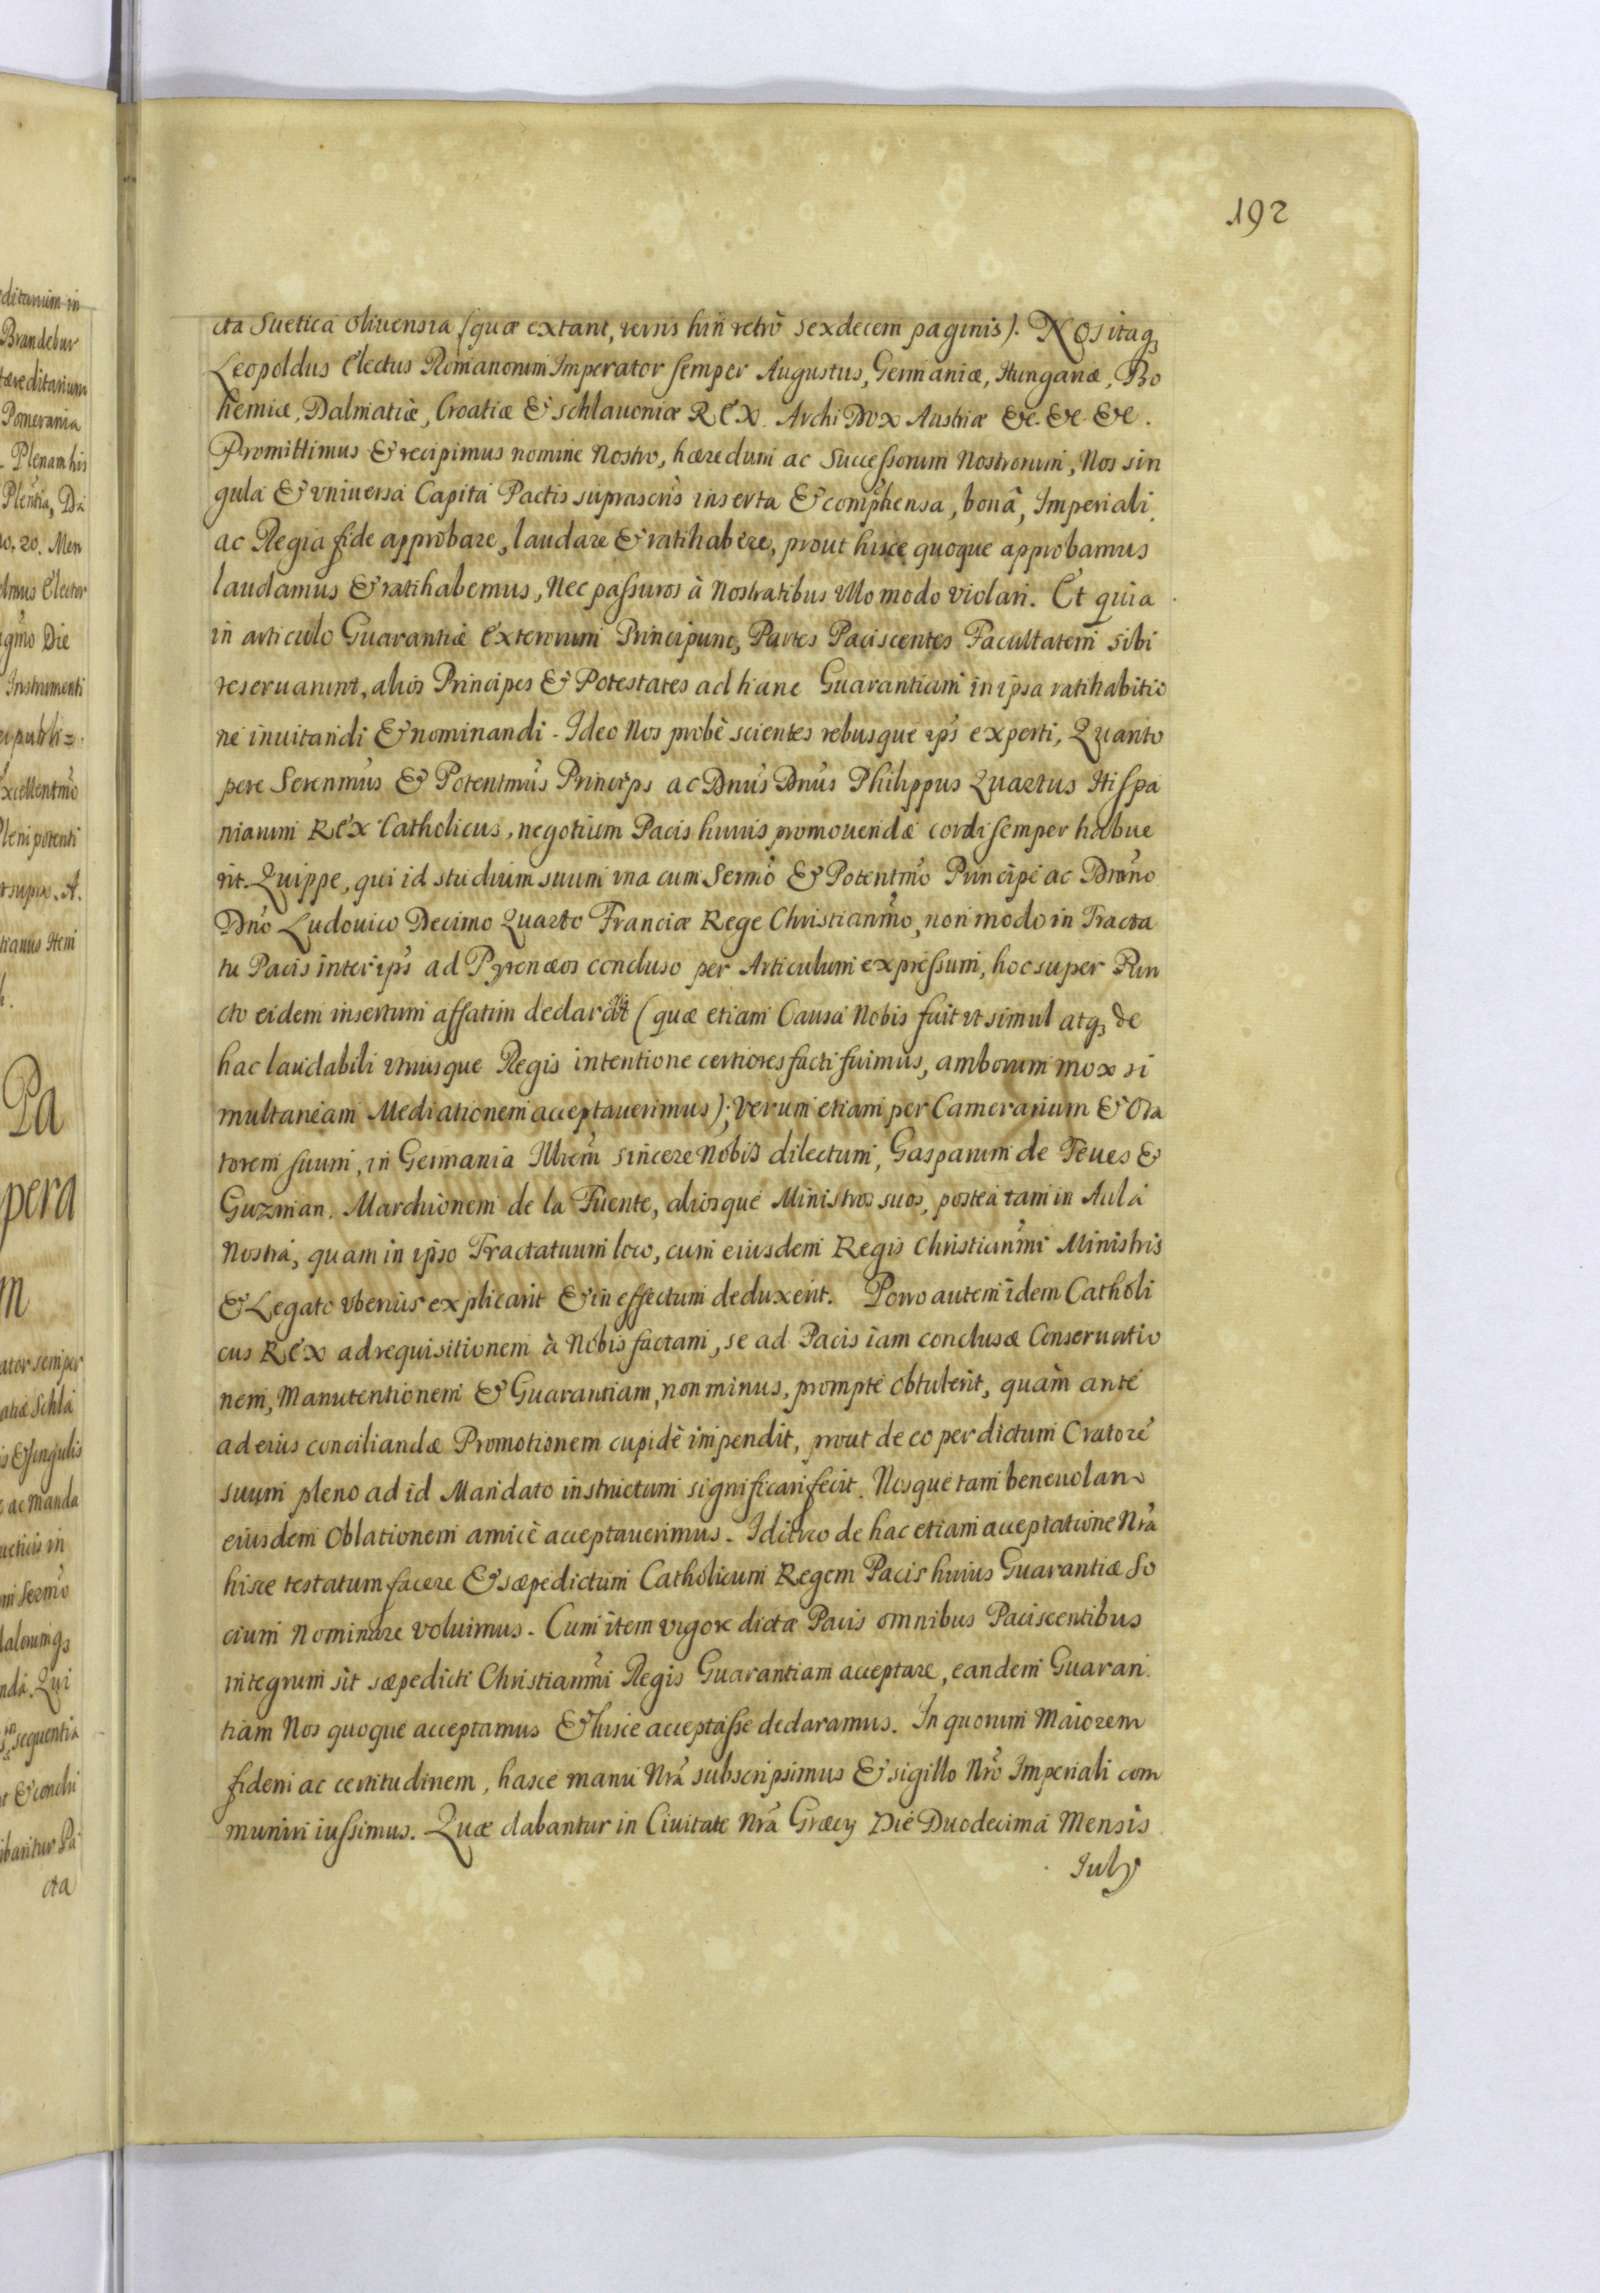 192
cta Suetica Oliuensia (quæ extant, versis hin retrò sexdecem paginis). NOS itaq3
Leopoldus Electus Romanorum Imperator semper Augustus, Germaniæ, Hungariæ, Bo
hemiæ, Dalmatiæ, Croatiæ & Schlauoniæ REX. ArchiDvx Austriæ &c. &c. &c.
Promittimus & recipimus nomine Nostro, hæredum ac Successorum Nostrorum, Nos sin
gula & vniuersa Capita Pactis suprascris inserta & comphensa, bonâ, Imperiali
ac Regia fide approbare, laudare & ratihabere, prout hisce quoque approbamus
laudamus & ratihabemus, Nec passuros à Nostratibus vllo modo violari. Et quia
in articulo Guarantiæ Exterorum Principum, Partes Paciscentes Facultatem sibi
reseruarint, alios Principes & Potestates ad hanc Guarantiam in ipsa ratihabitio
ne inuitandi & nominandi. Ideo Nos probè scientes rebusque ips experti, Quanto
pere Serenmus & Potentmus Princips ac Dnus Dnus Philippus Quartus Hispa
niarum REX Catholicus, negotium Pacis huius promouendæ cordi semper habue
rit. Quippe, qui id studium suum vna cum Sermo & Potentmo Principe ac Dmno
Dno Ludouico Decimo Quarto Franciæ Rege Christianmo, non modo in Tracta
tu Pacis inter ips ad Pyrenæos concluso per Articulum expressum, hoc super Pun
cto eidem insertum affatim declarat (quæ etiam Causa Nobis fuit vt simul atq3 de
hac laudabili vtriusque Regis intentione certiores facti fuimus, amborum mox si
multaneam Mediationem acceptauerimus); Verum etiam per Camerarium & Ora
torem suum, in Germania Illrem sincere Nobis dilectum, Gasparum de Teues &
Guzman. Marchionem de la Fuente, aliosque Ministros suos, postea tam in Aula
Nostra, quam in ipso Tractatuum loco, cum eiusdem Regis Christianmi Ministris
& Legato vberius explicarit & in effectum deduxerit. Porro autem idem Catholi
cus REX ad requisitionem à Nobis factam, se ad Pacis iam conclusæ Conseruatio
nem, Manutentionem & Guarantiam, non minus, prompte obtulerit, quàm ante
ad eius conciliandæ Promotionem cupidè impendit, prout de eo per dictum Oratore
suum pleno ad id Mandato instructum significari fecit. Nosque tam beneuolam
eiusdem Oblationem amicè acceptauerimus. Idcirco de hac etiam acceptatione Nra
hisce testatum facere & sæpedictum Catholicum Regem Pacis huius Guarantiæ So
cium Nominare voluimus. Cum item vigore dictæ Pacis omnibus Paciscentibus
integrum sit sæpedicti Christianmi Regis Guarantiam acceptare, eandem Guaran
tiam Nos quoque acceptamus & hisce acceptasse declaramus. In quorum Maiorem
fidem ac certitudinem, hasce manu Nra subscripsimus & sigillo Nro Imperiali com
muniri iussimus. Quæ dabantur in Ciuitate Nra Græcij Die Duodecima Mensis
July